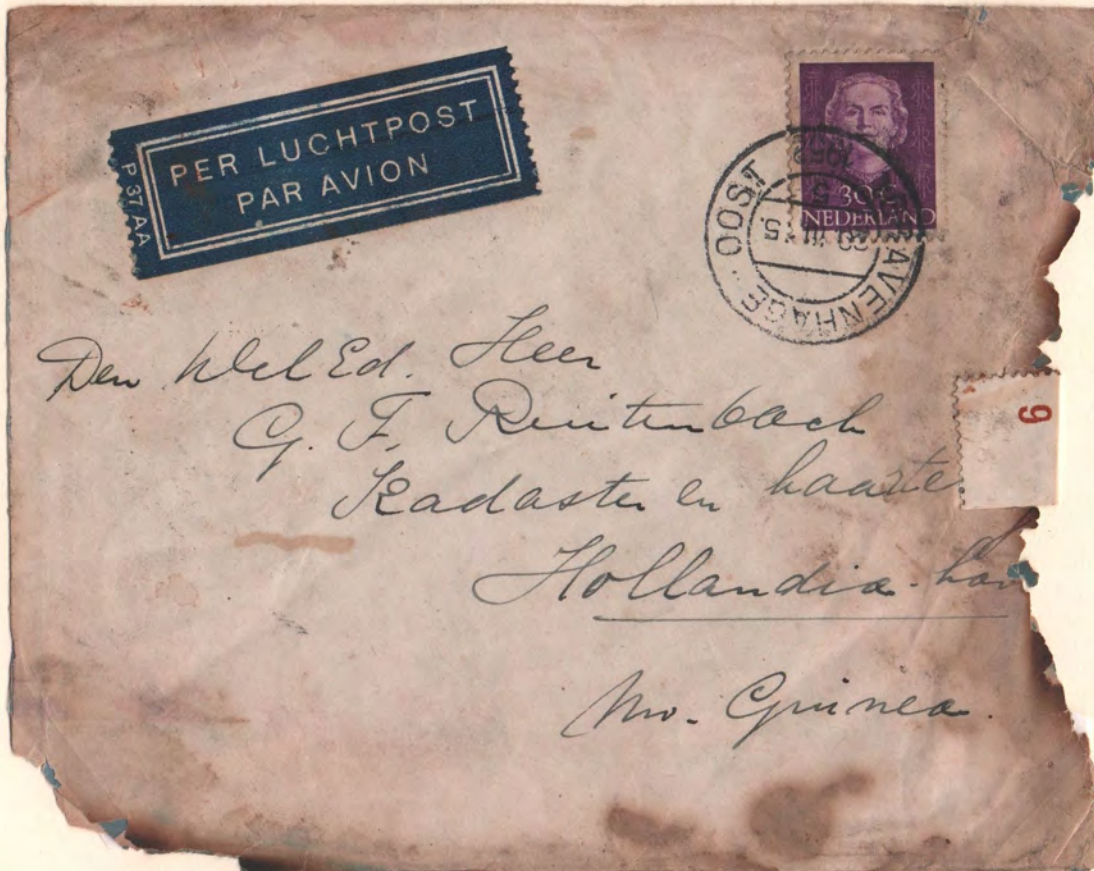 PER LUCHTPOST
PAR AVION
P 37 AA
30 c
NEDERLAND
'S GRAVENHAGE - OOST
1952
5
Den WelEd. Heer
G. F. Ruitenbach
Kadaster en kaarte
Hollandia-hav
Nw. Guinea.
9